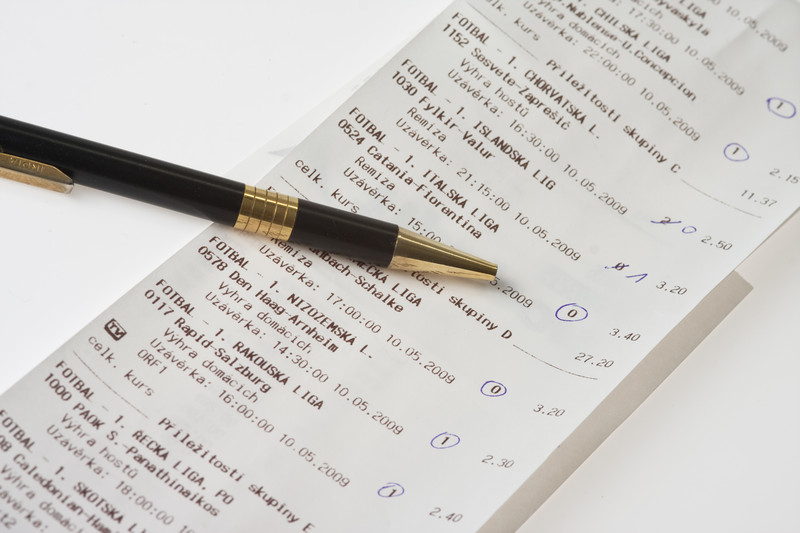 LIGA
Jyväskyla
17:30:00 10.05.2009
CHILSKA LIGA
Nublense-U.Concepcion
Výhra domácích
Uzávěrka: 22:00:00 10.05.2009 1
celk. kurs Příležitosti skupiny C 11.37
FOTBAL - 1. CHORVATSKA L.
1152 Sesvete-Zaprešič
Výhra hostů
Uzávěrka: 16:30:00 10.05.2009 2 0 2.50
FOTBAL - 1. ISLANDSKA LIG
1030 Fylkir-Valur
Remíza
Uzávěrka: 21:15:00 10.05.2009 0 1 3.20
FOTBAL - 1. ITALSKA LIGA
0524 Catania-Fiorentina
Remíza
Uzávěrka: 15:00 5.2009 0 3.40
celk. kurs tosti skupiny D 27.20
ŘECKA LIGA
bach-Schalke
Remíza
Uzávěrka: 17:00:00 10.05.2009 0 3.20
FOTBAL - 1. NIZOZEMSKA L.
0578 Den Haag-Arnheim
Výhra domácích
Uzávěrka: 14:30:00 10.05.2009 1 2.30
FOTBAL - 1. RAKOUSKA LIGA
0117 Rapid-Salzburg
Výhra domácích
TV ORF1
Uzávěrka: 16:00:00 10.05.2009 1 2.40
celk. kurs Příležitosti skupiny E
FOTBAL - 1. RECKA LIGA, PO
1000 PAOK S.-Panathinaikos
Výhra hostů
Uzávěrka: 18:00:00 10
FOTBAL - 1. SKOTSKA L
Caledonian-Ham
Výhra domác
Uzávěrka: 1